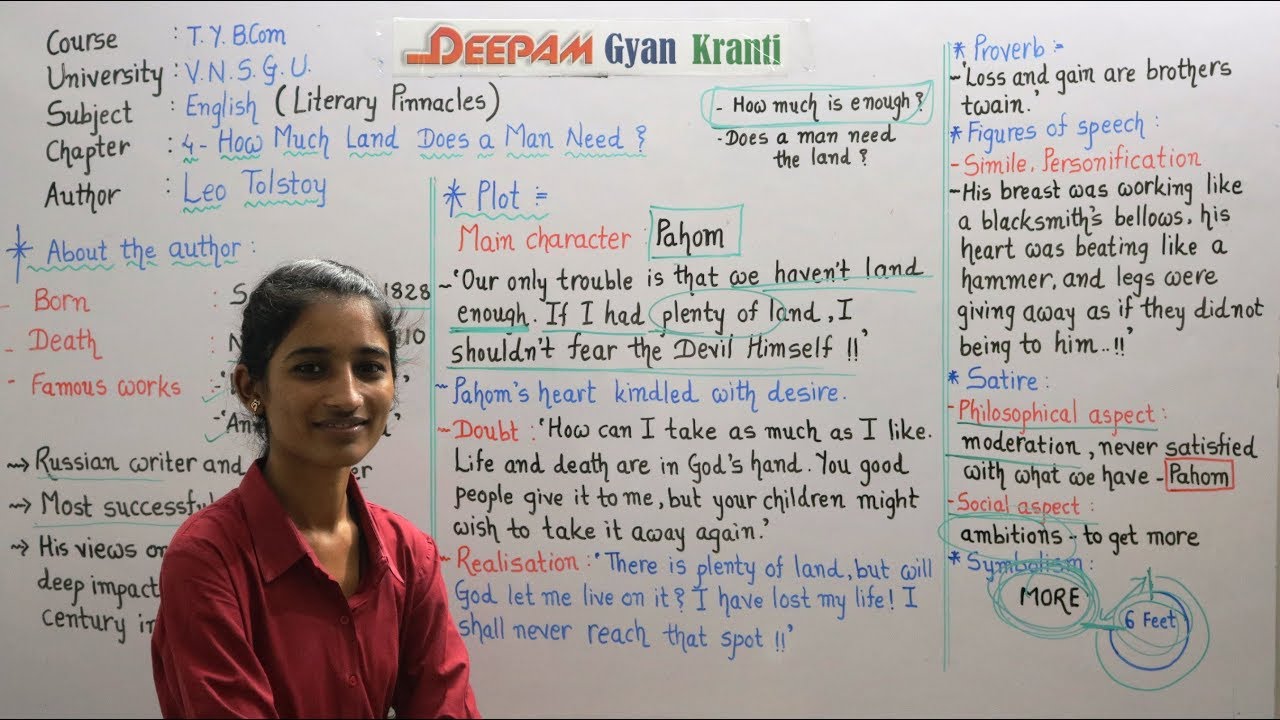 DEEPAM Gyan Kranti
Course : T.Y.B.Com
University : V.N.S.G.U.
Subject : English (Literary Pinnacles)
Chapter : 4 - How Much Land Does a Man Need ?
Author : Leo Tolstoy
- How much is enough ?
- Does a man need
the land ?
* About the author :
- Born : 1828
- Death : 10
- Famous works : - '
⇝ Russian writer and
⇝ Most successful
→ His views on
deep impact
century in
* Plot :=
Main character : Pahom
~ 'Our only trouble is that we haven't land
enough. If I had plenty of land, I
shouldn't fear the Devil Himself !!'
~ Pahom's heart kindled with desire.
~ Doubt : 'How can I take as much as I like.
Life and death are in God's hand. You good
people give it to me, but your children might
wish to take it away again.'
~ Realisation : 'There is plenty of land, but will
God let me live on it? I have lost my life! I
shall never reach that spot !!'
* Proverb :-
~ 'Loss and gain are brothers
twain.'
* Figures of speech :
- Simile, Personification
~ His breast was working like
a blacksmith's bellows, his
heart was beating like a
hammer, and legs were
giving away as if they did not
being to him..!!'
* Satire :
- Philosophical aspect :
moderation, never satisfied
with what we have - Pahom
- Social aspect :
ambitions - to get more
* Symbolism :
MORE
6 Feet